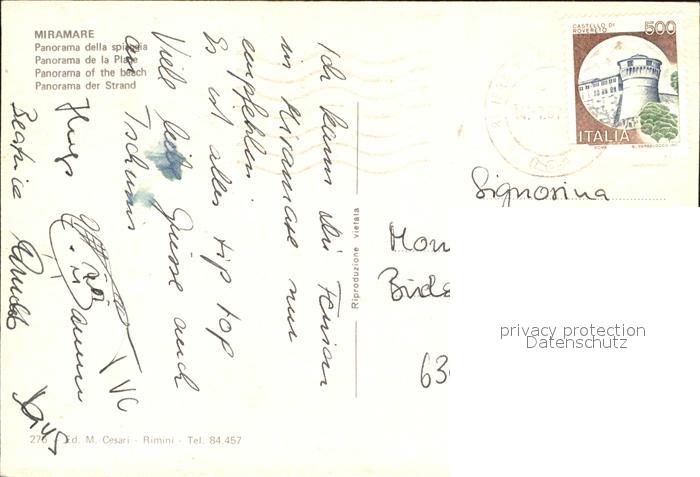 MIRAMARE
Panorama della spiaggia
Panorama de la Plage
Panorama of the beach
Panorama der Strand
Ich kann die Ferien
in Miramare nur
empfehlen.
Es ist alles tip top
Viele liebe Grüsse auch
an Tschumis
Hugo
Beatrice
276 - Ed. M. Cesari - Rimini - Tel. 84.457
Riproduzione vietata
CASTELLO DI
ROVERETO
500
ITALIA
ROMA
Signorina
Mon
63
privacy protection
Datenschutz